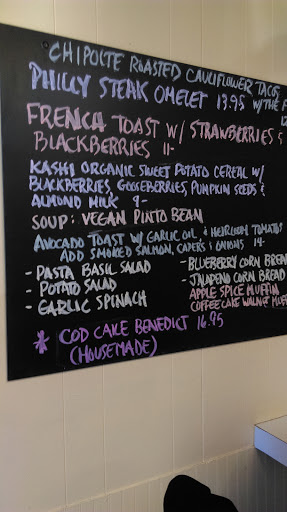 CHIPOLTE ROASTED CAULIFLOWER TACOS
PHILLY STEAK OMELET 13.95 W/THE F
FRENCH TOAST W/ STRAWBERRIES &
BLACKBERRIES 11-
KASHI ORGANIC SWEET POTATO CEREAL W/
BLACKBERRIES, GOOSEBERRIES, PUMPKIN SEEDS &
ALMOND MILK 9-
SOUP: VEGAN PINTO BEAN
AVOCADO TOAST W/ GARLIC OIL & HEIRLOOM TOMATOS
ADD SMOKED SALMON, CAPERS & ONIONS 14-
- PASTA BASIL SALAD
- POTATO SALAD
- GARLIC SPINACH
- BLUEBERRY CORN BREAD
- JALAPENO CORN BREAD
APPLE SPICE MUFFIN
COFFEE CAKE WALNUT MUFF
* COD CAKE BENEDICT 16.95
(HOUSEMADE)